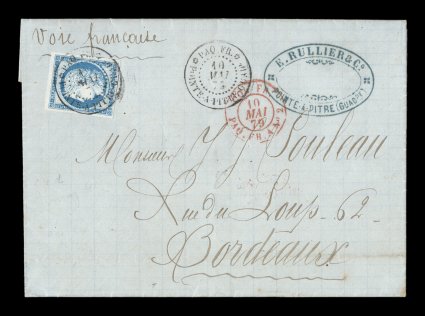 Voie française
PAQ. FR.
10
MAI
E. RULLIER & Cº
POINTE-A-PITRE (GUADPE)
10
MAI
79
PAQ. FR.
Monsieur J. J. Souleau
Rue du Loup-62-
Bordeaux